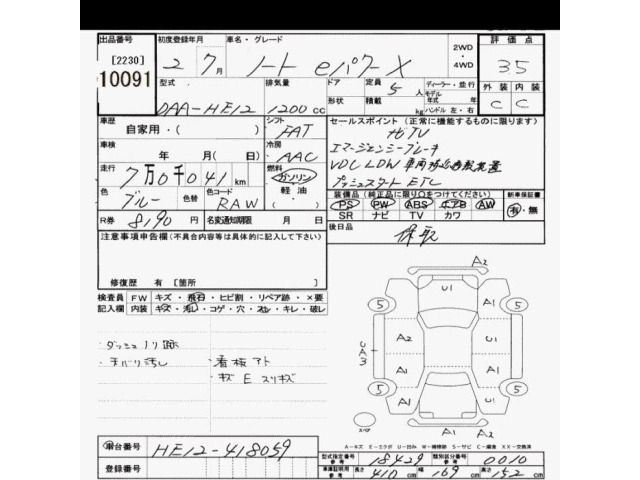 出品番号 初度登録年月 車名・グレード 2WD・4WD 評価点
[2230] 10091 2 7月 ノート eパワー X 35
外装 内装
C C
型式 排気量 ドア 定員 5人 ディーラー・並行
DAA-HE12 1200cc 形状 積載 kg モデル 年式 年 ハンドル 左・右
車歴 シフト セールスポイント (正常に機能するものに限ります)
自家用・( ) FAT
年 月(日) 冷房 エマージェンシーブレーキ
AAC VDC LDW
走行 7万0千041km 燃料 ガソリン 軽油 プッシュスタート ETC
色 ブルー 色替 色コード RAW
装備品 (純正品に限り○をつけてください) 新車保証書
PS PW ABS エアB AW 有・無
SR ナビ TV カワ
R券 8190円 名変通知期限 月 日
後日品 保 取
注意事項申告欄(不具合内容等は具体的に記入して下さい)
修復歴 有 [箇所 ]
検査員 FW キズ・飛石・ヒビ割・リペア跡・×要
記入欄 内装 キズ・汚レ・コゲ・穴・スレ・キレ・破レ
・ダッシュ
・天バリ汚レ ・看板アト
・キズ E スリキズ
A2
5 U1 5
A1 A1
UA3 A2 U1
A1 A1
5 5
スペア A1 A2
A-キズ E-エクボ U-凹み W-補修跡 S-サビ C-腐食 XX-交換済
車台番号 HE12-418059
登録番号
型式指定番号 参考 18429 類別区分番号 参考 0010
車庫証明用 参考 長さ 410cm 幅 169cm 高さ 152cm